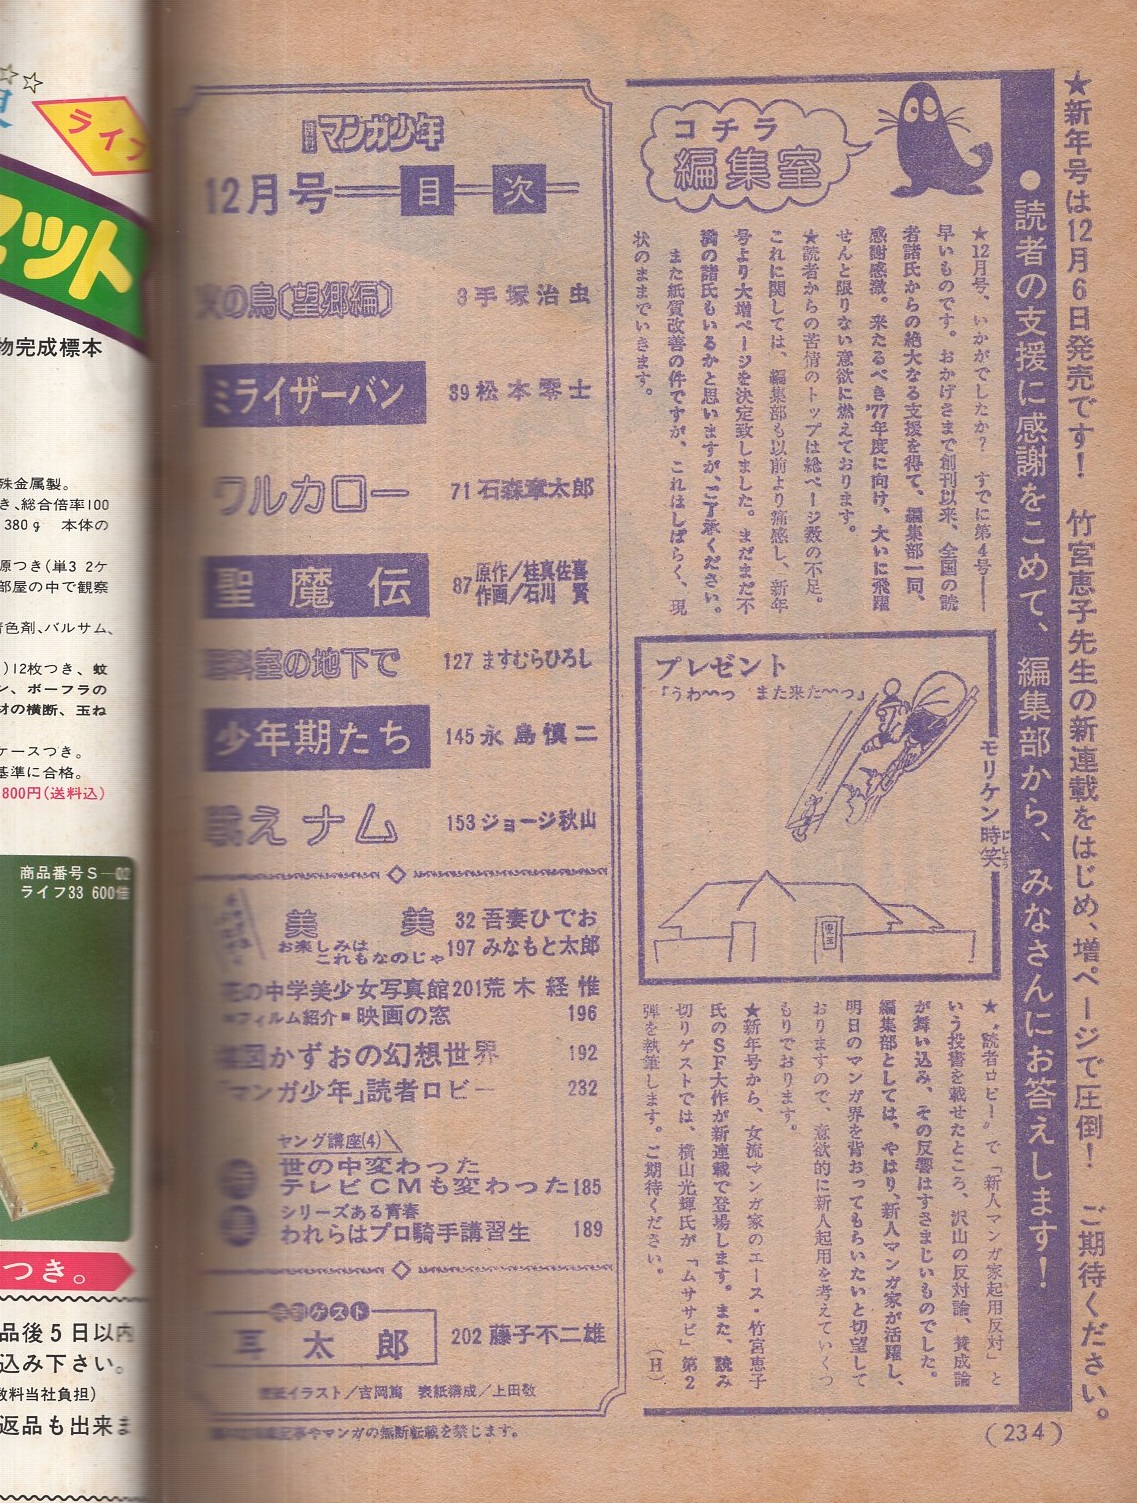 ★新年号は12月6日発売です！　竹宮恵子先生の新連載をはじめ、増ページで圧倒！　ご期待ください。
●読者の支援に感謝をこめて、編集部から、みなさんにお答えします！
コチラ
編集室
★12月号、いかがでしたか？　すでに第4号――
早いものです。おかげさまで創刊以来、全国の読
者諸氏からの絶大なる支援を得て、編集部一同、
感謝感激。来たるべき'77年度に向け、大いに飛躍
せんと限りない意欲に燃えております。
★読者からの苦情のトップは総ページ数の不足。
これに関しては、編集部も以前より痛感し、新年
号より大増ページを決定致しました。まだまだ不
満の諸氏もいるかと思いますが、ご了承ください。
また紙質改善の件ですが、これはしばらく、現
状のままでいきます。
プレゼント
「うわ〜〜っ　また来た〜〜っ」
モリケン時笑
じしょう
児玉
★〝読者ロビー〟で「新人マンガ家起用反対」と
いう投書を載せたところ、沢山の反対論、賛成論
が舞い込み、その反響はすさまじいものでした。
編集部としては、やはり、新人マンガ家が活躍し、
明日のマンガ界を背おってもらいたいと切望して
おりますので、意欲的に新人起用を考えていくつ
もりでおります。
★新年号から、女流マンガ家のエース・竹宮恵子
氏のSF大作が新連載で登場します。また、読み
切りゲストでは、横山光輝氏が「ムササビ」第2
弾を執筆します。ご期待ください。
（H）
マンガ少年
12月号 目次
火の鳥（望郷編） 3 手塚治虫
ミライザーバン 39 松本零士
ワルカロー 71 石森章太郎
聖魔伝 87 原作／桂真佐喜
作画／石川　賢
理科室の地下で 127 ますむらひろし
少年期たち 145 永島慎二
戦えナム 153 ジョージ秋山
美　美 32 吾妻ひでお
お楽しみは
これもなのじゃ 197 みなもと太郎
花の中学美少女写真館 201 荒木経惟
■フィルム紹介■映画の窓 196
楳図かずおの幻想世界 192
「マンガ少年」読者ロビー 232
ヤング講座(4)
世の中変わった
テレビCMも変わった 185
シリーズある青春
われらはプロ騎手講習生 189
ゲスト
耳太郎 202 藤子不二雄
表紙イラスト／吉岡篤　表紙構成／上田敬
記事やマンガの無断転載を禁じます。
（234）
ライフ
セット
物完成標本
殊金属製。
き、総合倍率100
380g　本体の
原つき（単3 2ケ
部屋の中で観察
色剤、バルサム、
）12枚つき、蚊
ン、ボーフラの
オの横断、玉ね
ケースつき。
基準に合格。
800円（送料込）
商品番号S―02
ライフ33 600倍
つき。
品後5日以内
込み下さい。
数料当社負担）
返品も出来ま